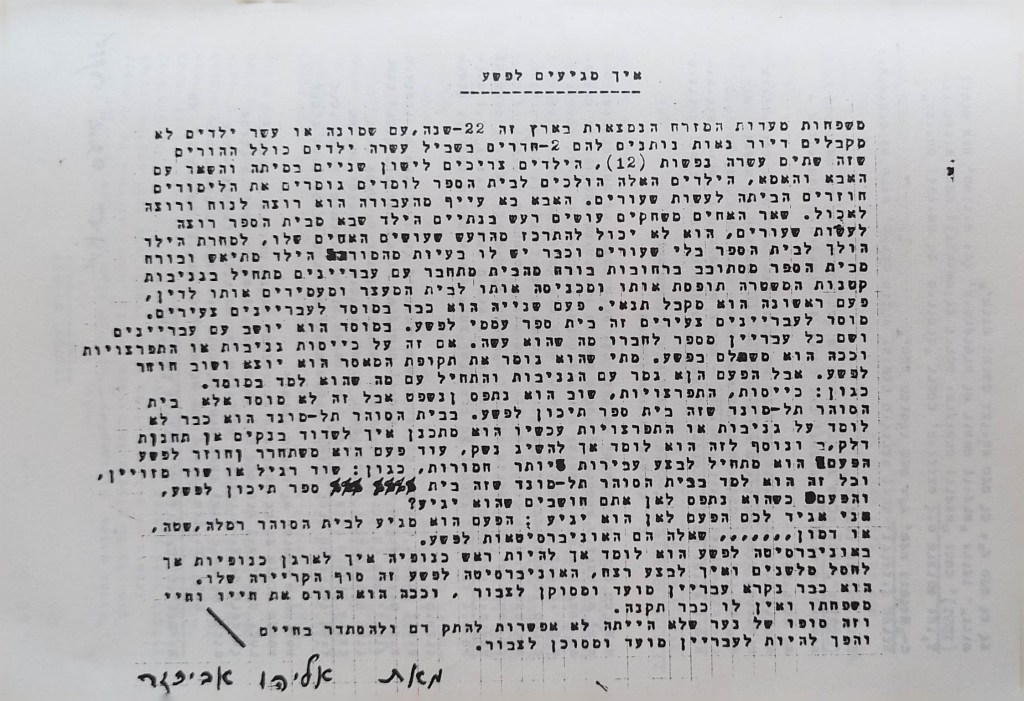 איך מגיעים לפשע
משפחות מעדות המזרח הנמצאות בארץ זה 22-שנה,עם שמונה או עשר ילדים לא
מקבלים דיור נאות נותנים להם 2-חדרים בשביל עשרה ילדים כולל ההורים
שזה שתים עשרה נפשות (12), הילדים צריכים לישון שניים במיתה והשאר עם
האבא והאמא, הילדים האלה הולכים לבית הספר לומדים גומרים את הלימודים
חוזרים הביתה לעשות שעורים. האבא בא עייף מהעבודה הוא רוצה לנוח ורוצה
לאכול. שאר האחים משחקים עושים רעש בנתיים הילד שבא מבית הספר רוצה
לעשות שעורים, הוא לא יכול להתרכז מהרעש שעושים האחים שלו, למחרת הילד
הולך לבית הספר בלי שעורים וכבר יש לו בעיות מהמורה הילד מתיאש ובורח
מבית הספר מסתובב ברחובות בורח מהבית מתחבר עם עבריינים מתחיל בגניבות
קטנות המשטרה תופסת אותו ומכניסה אותו לבית המעצר ומעמידים אותו לדין,
פעם ראשונה הוא מקבל תנאי. פעם שנייה הוא כבר במוסד לעבריינים צעירים.
מוסד לעבריינים צעירים זה בית ספר עממי לפשע. במוסד הוא יושב עם עבריינים
ושם כל עבריין מספר לחברו מה שהוא עשה. אם זה על כייסות גניבות או התפרצויות
וככה הוא משתלם בפשע. מתי שהוא גומר את תקופת המאסר הוא יוצא ושוב חוזר
לפשע. אבל הפעם הוא גמר עם הגניבות והתחיל עם מה שהוא למד במוסד.
כגון: כייסות, התפרצויות, שוב הוא נתפס ונשפט אבל זה לא מוסד אלא בית
הסוהר תל-מונד שזה בית ספר תיכון לפשע. בבית הסוהר תל-מונד הוא כבר לא
לומד על גניבות או התפרצויות עכשיו הוא מתכנן איך לשדוד בנקים או תחנות
דלק, ונוסף לזה הוא לומד אך להשיג נשק, עוד פעם הוא משתחרר וחוזר לפשע
הפעם הוא מתחיל לבצע עבירות יותר חמורות, כגון: שוד רגיל או שוד מזויין,
וכל זה הוא למד בבית הסוהר תל-מונד שזה בית ספר תיכון לפשע,
והפעם כשהוא נתפס לאן אתם חושבים שהוא יגיע?
אני אגיד לכם הפעם לאן הוא יגיע : הפעם הוא מגיע לבית הסוהר רמלה,שטה,
או דמון....... שאלה הם האוניברסיטאות לפשע.
באוניברסיטה לפשע הוא לומד אך להיות ראש כנופיה איך לארגן כנופיות אך
לחסל מלשנים ואיך לבצע רצח, האוניברסיטה לפשע זה סוף הקריירה שלו.
הוא כבר נקרא עבריין מועד ומסוקן לצבור , וככה הוא הורס את חייו וחיי
משפחתו ואין לו כבר תקנה.
וזה סופו של נער שלא הייתה לא אפשרות להתק דם ולהסתדר בחיים
והפך להיות לעבריין מועד ומסוכן לצבור.
מאת אליהו אביעזר